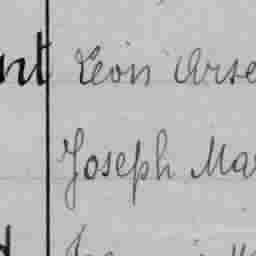 nt Léon Arse
Joseph Mar